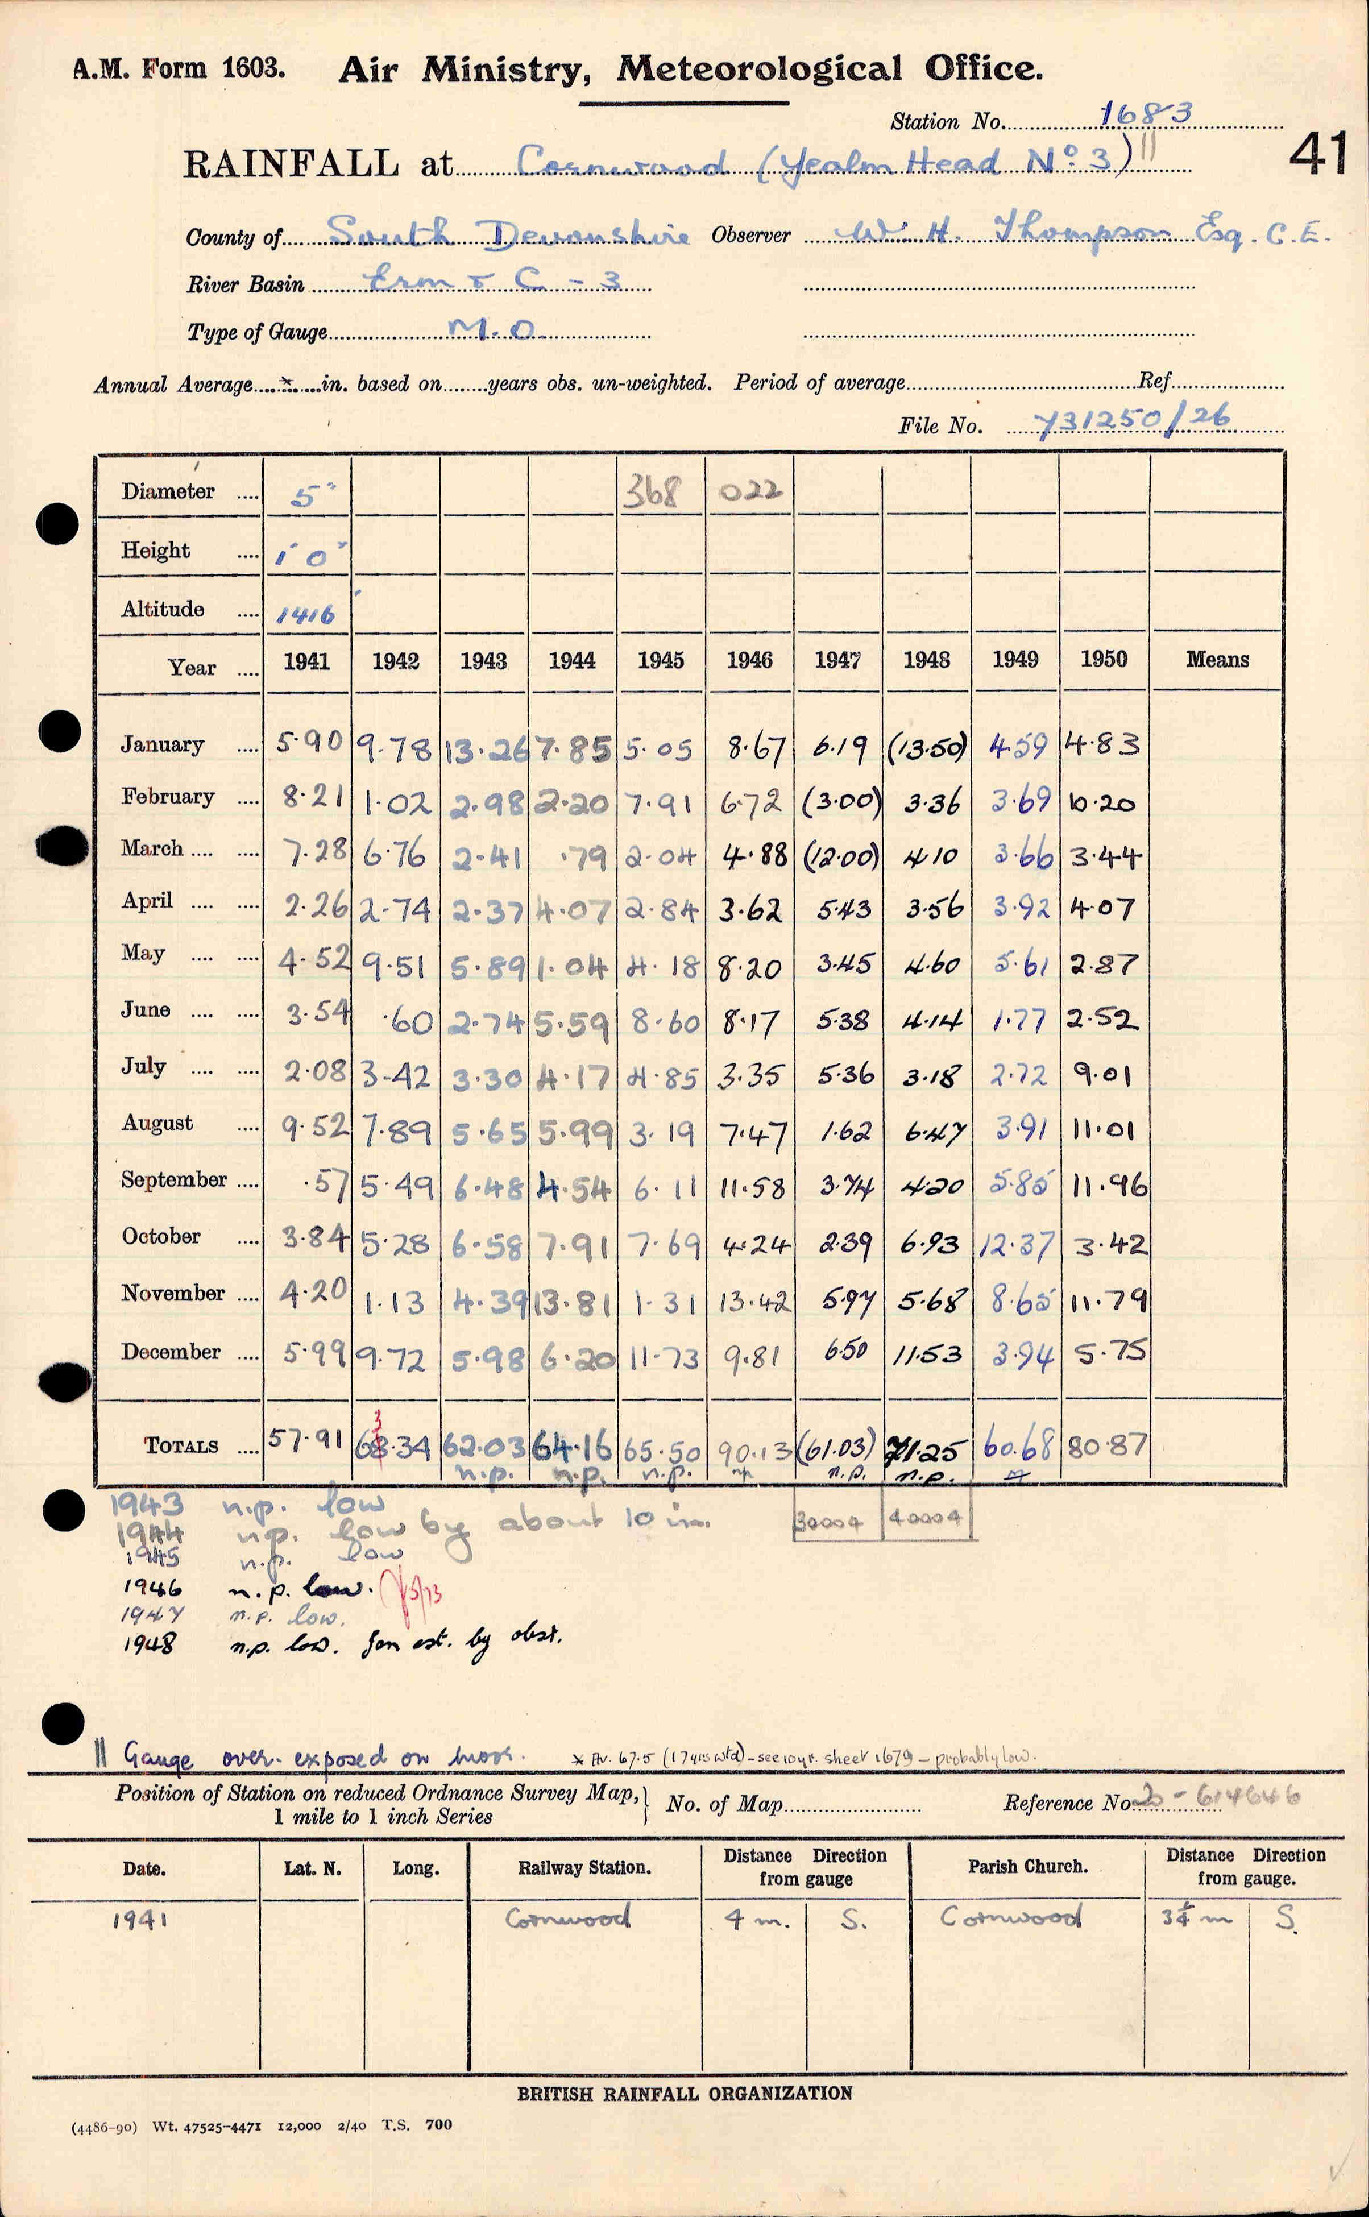 A.M. Form 1603. Air Ministry, Meteorological Office.
Station No. 1683
41
RAINFALL at Cornwood (Yealm Head No. 3) ||
County of South Devonshire Observer W. H. Thompson Esq. C.E.
River Basin Erm & C - 3
Type of Gauge M.O.
Annual Average x in. based on years obs. un-weighted. Period of average Ref.
File No. 731250/26
Diameter .... 5" 368 022
Height .... 1' 0"
Altitude .... 1416'
Year .... 1941 1942 1943 1944 1945 1946 1947 1948 1949 1950 Means
January .... 5.90 9.78 13.26 7.85 5.05 8.67 6.19 (13.50) 4.59 4.83
February .... 8.21 1.02 2.98 2.20 7.91 6.72 (3.00) 3.36 3.69 10.20
March .... .... 7.28 6.76 2.41 .79 2.04 4.88 (12.00) 4.10 3.66 3.44
April .... .... 2.26 2.74 2.37 4.07 2.84 3.62 5.43 3.56 3.92 4.07
May .... .... 4.52 9.51 5.89 1.04 4.18 8.20 3.45 4.60 5.61 2.87
June .... .... 3.54 .60 2.74 5.59 8.60 8.17 5.38 4.14 1.77 2.52
July .... .... 2.08 3.42 3.30 4.17 4.85 3.35 5.36 3.18 2.72 9.01
August .... 9.52 7.89 5.65 5.99 3.19 7.47 1.62 6.47 3.91 11.01
September .... .57 5.49 6.48 4.54 6.11 11.58 3.74 4.20 5.85 11.96
October .... 3.84 5.28 6.58 7.91 7.69 4.24 2.39 6.93 12.37 3.42
November .... 4.20 1.13 4.39 13.81 1.31 13.42 5.97 5.68 8.65 11.79
December .... 5.99 9.72 5.98 6.20 11.73 9.81 6.50 11.53 3.94 5.75
TOTALS .... 57.91 63.34 62.03 64.16 65.50 90.13 (61.03) 71.25 60.68 80.87
n.p. n.p. n.p. np n.p. n.p.
1943 n.p. low
1944 n.p. low by about 10 in. 30004 40004
1945 n.p. low
1946 n.p. low.
1947 n.p. low.
1948 n.p. low. Jan est. by obsr.
|| Gauge over-exposed on moor. x Av. 67.5 (17 yrs wtd) - see 10 yr. sheet 1679 - probably low.
Position of Station on reduced Ordnance Survey Map, } No. of Map Reference No. 20-614646
1 mile to 1 inch Series
Date. Lat. N. Long. Railway Station. Distance Direction from gauge Parish Church. Distance Direction from gauge.
1941 Cornwood 4 m. S. Cornwood 3¼ m S.
BRITISH RAINFALL ORGANIZATION
(4486-90) Wt. 47525-4471 12,000 2/40 T.S. 700